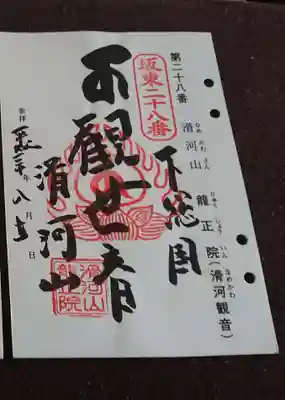 第二十八番
滑河山 龍正院(滑河観音)
なめ かわ さん りゅう しょう いん なめかわ
坂東二十八番
下総国
観世音
滑河山
奉拝
年 八月 日
滑河山
龍正院